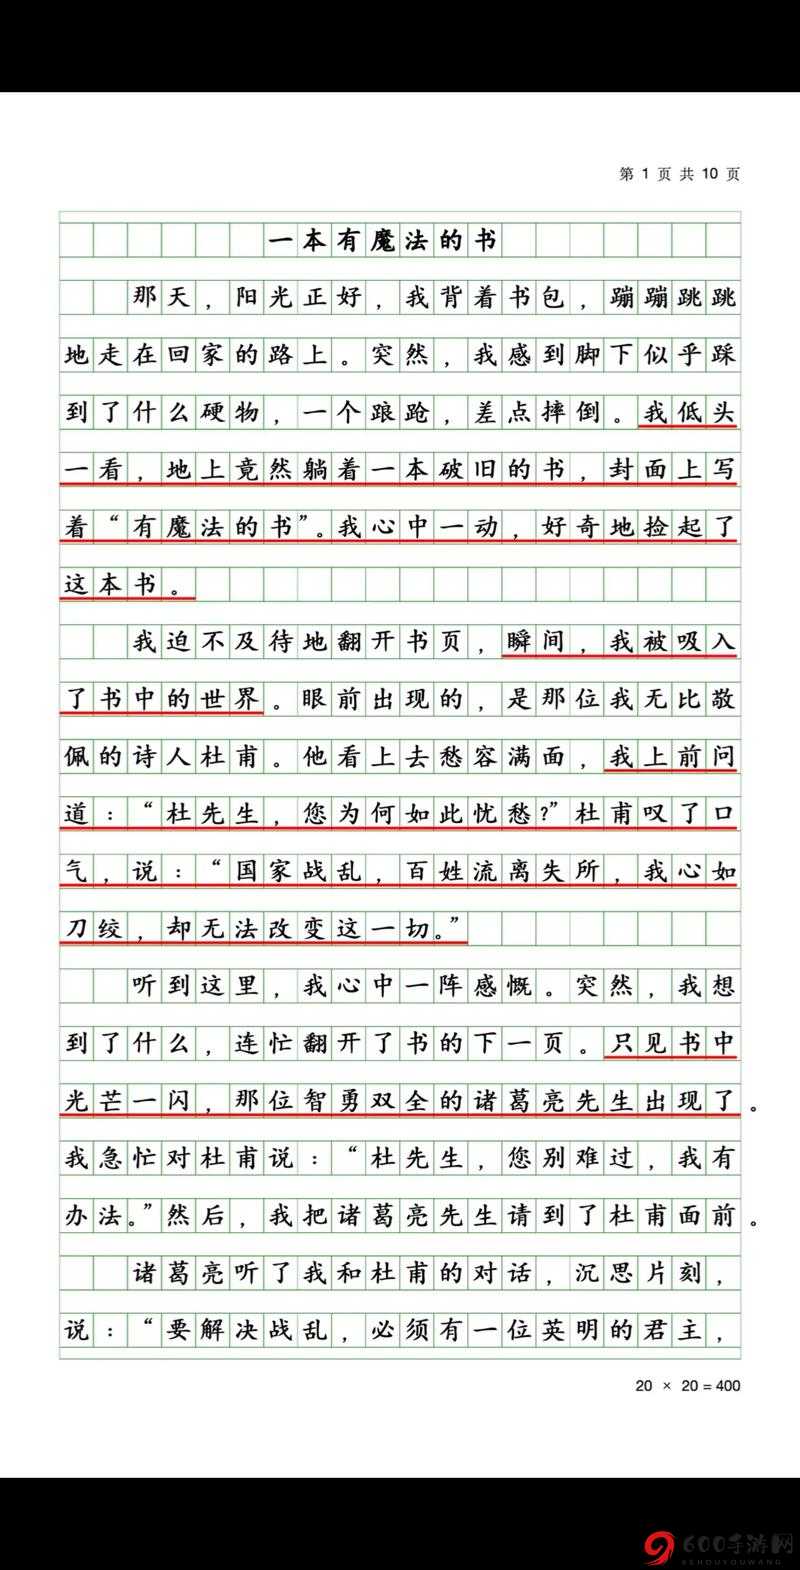 第 1 页 共 10 页
一本有魔法的书
那天，阳光正好，我背着书包，蹦蹦跳跳
地走在回家的路上。突然，我感到脚下似乎踩
到了什么硬物，一个踉跄，差点摔倒。我低头
一看，地上竟然躺着一本破旧的书，封面上写
着“有魔法的书”。我心中一动，好奇地捡起了
这本书。
我迫不及待地翻开书页，瞬间，我被吸入
了书中的世界。眼前出现的，是那位我无比敬
佩的诗人杜甫。他看上去愁容满面，我上前问
道：“杜先生，您为何如此忧愁？”杜甫叹了口
气，说：“国家战乱，百姓流离失所，我心如
刀绞，却无法改变这一切。”
听到这里，我心中一阵感慨。突然，我想
到了什么，连忙翻开了书的下一页。只见书中
光芒一闪，那位智勇双全的诸葛亮先生出现了。
我急忙对杜甫说：“杜先生，您别难过，我有
办法。”然后，我把诸葛亮先生请到了杜甫面前。
诸葛亮听了我和杜甫的对话，沉思片刻，
说：“要解决战乱，必须有一位英明的君主，
20 × 20 = 400
600手游网
6SHOUYOUWANG